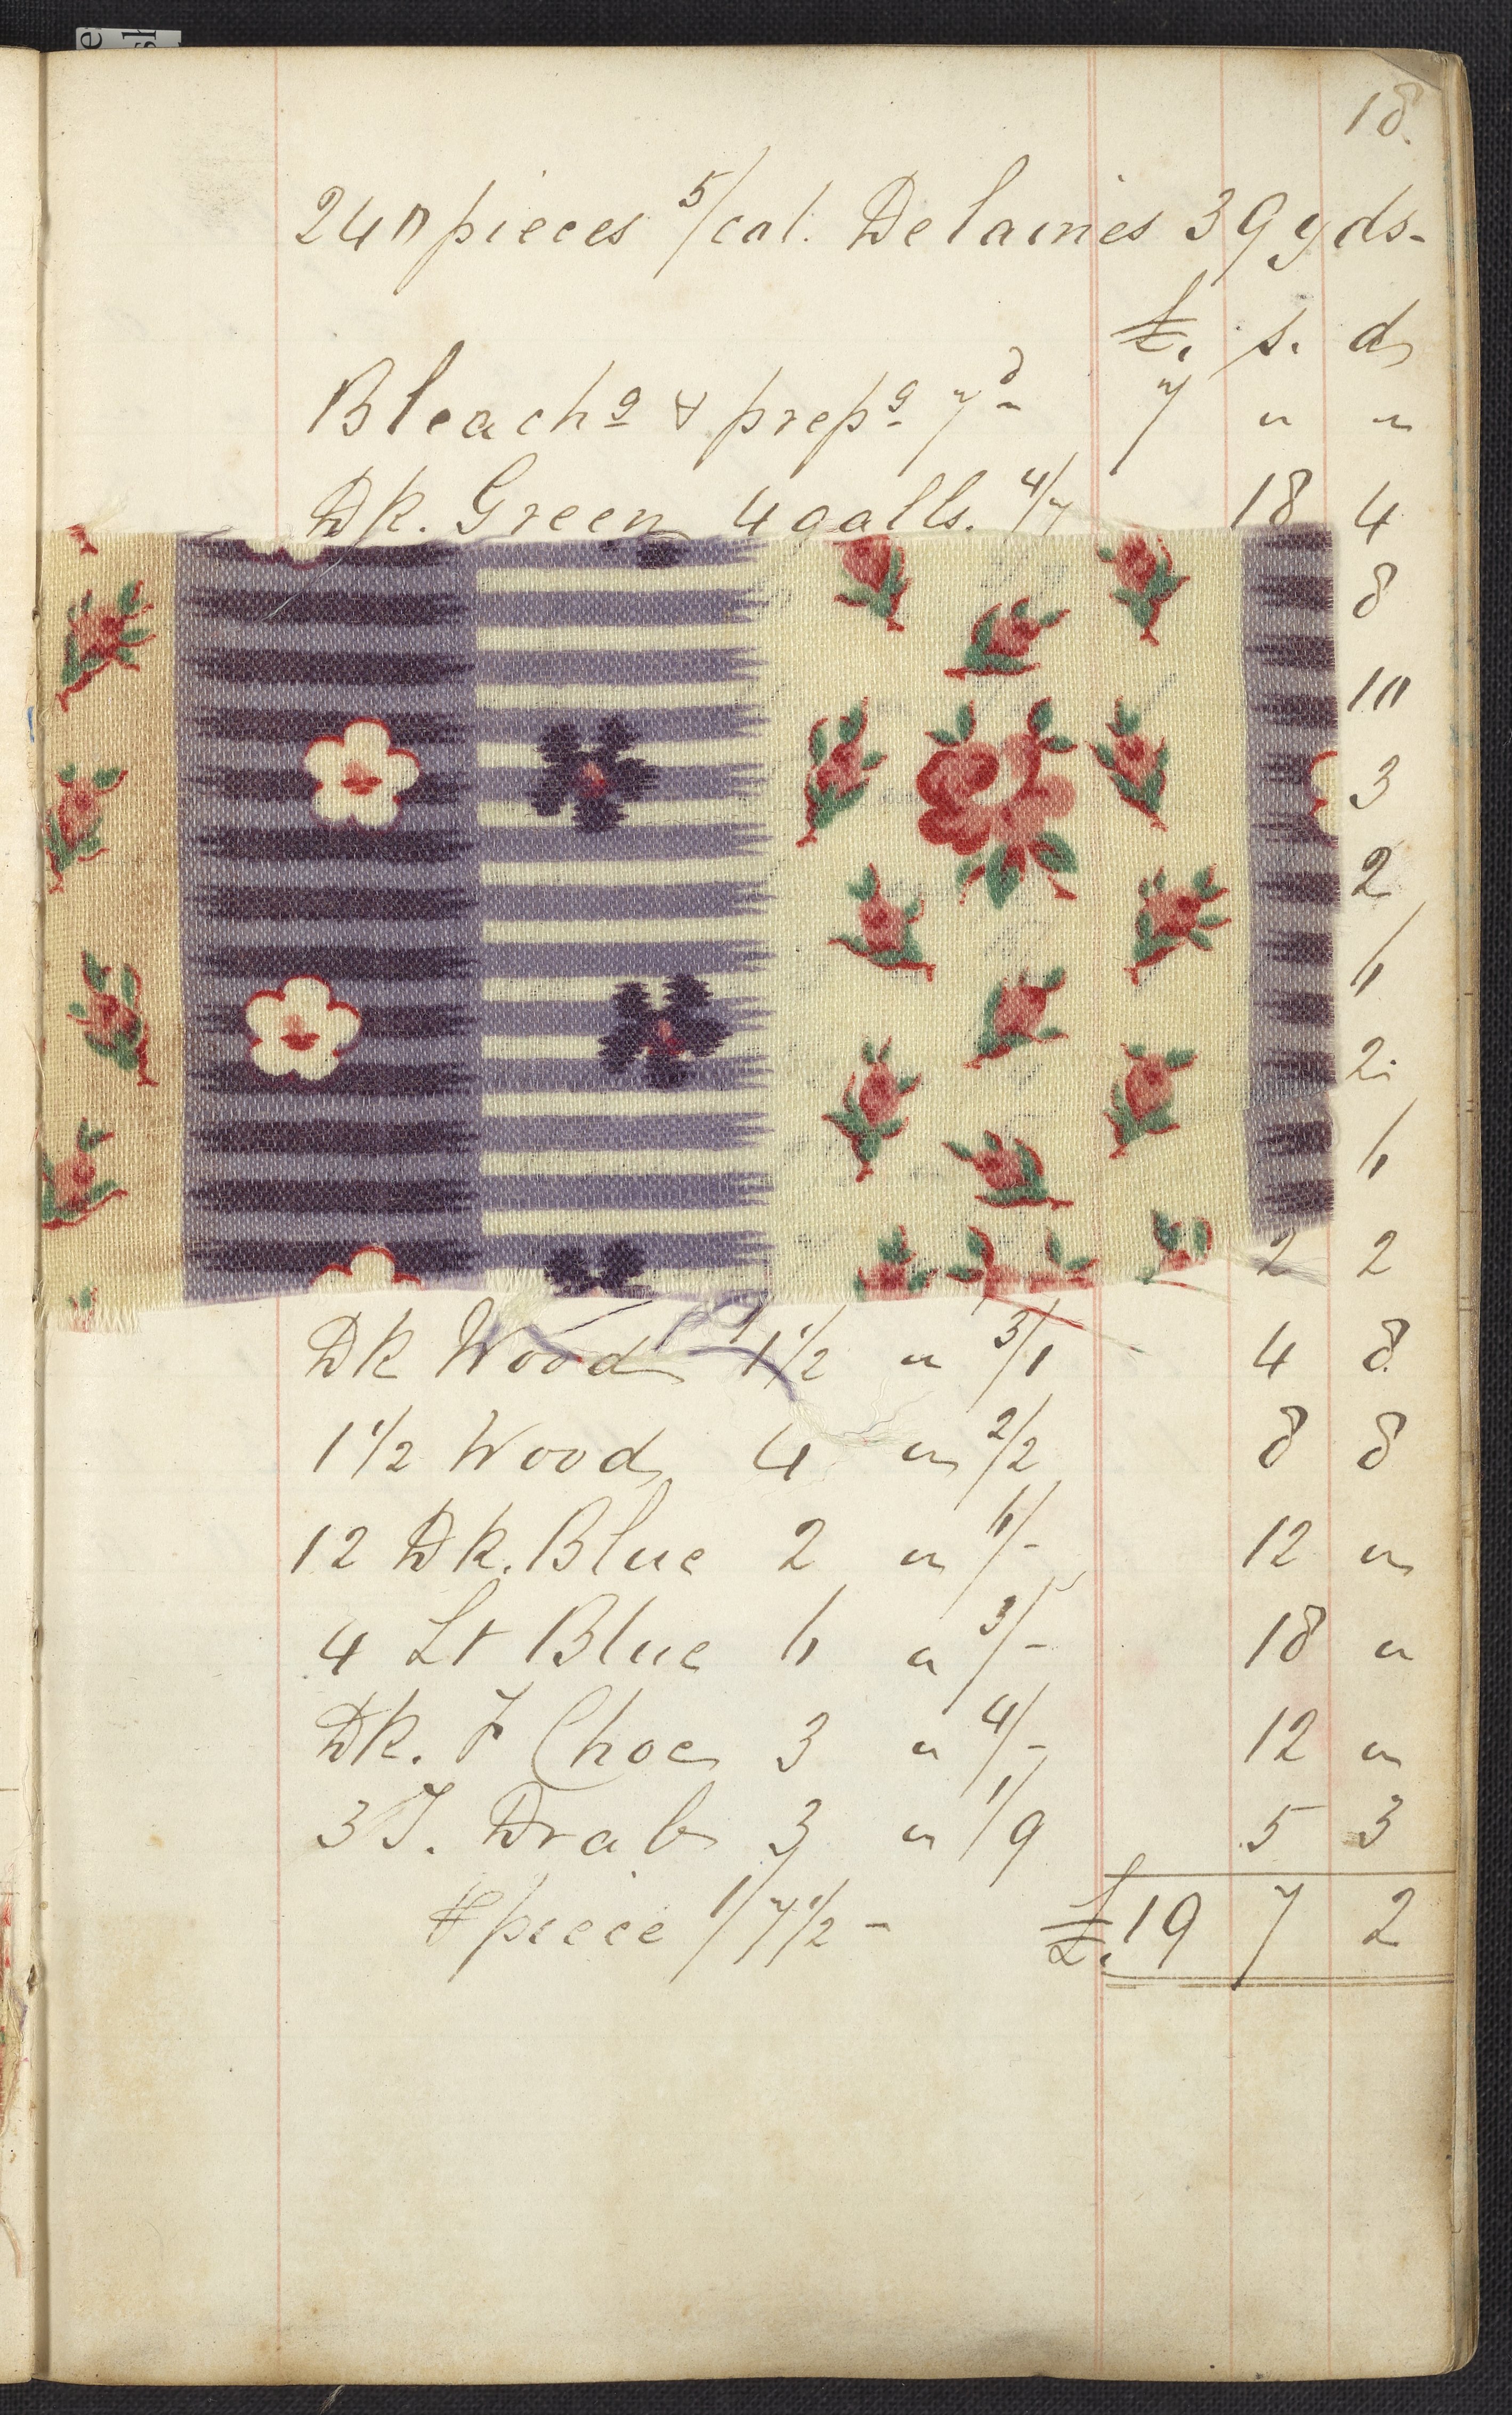 18.
240 pieces 5/col. Delaines 39 yds-
£. s. d
Bleachg & prepg 7d 7 " "
Dk. Green 4 galls. 4/7 18 4
8
10
3
2
6
2
6
2 2
Dk Wood 1 1/2 " 3/1 4 8
1 1/2 Wood 4 " 2/2 8 8
12 Dk. Blue 2 " 6/- 12 "
4 Lt Blue 6 " 3/- 18 "
Dk. F Choc 3 " 4/- 12 "
3 T. Drab 3 " 1/9 5 3
⅌ piece 1/7 1/2 - £. 19 7 2